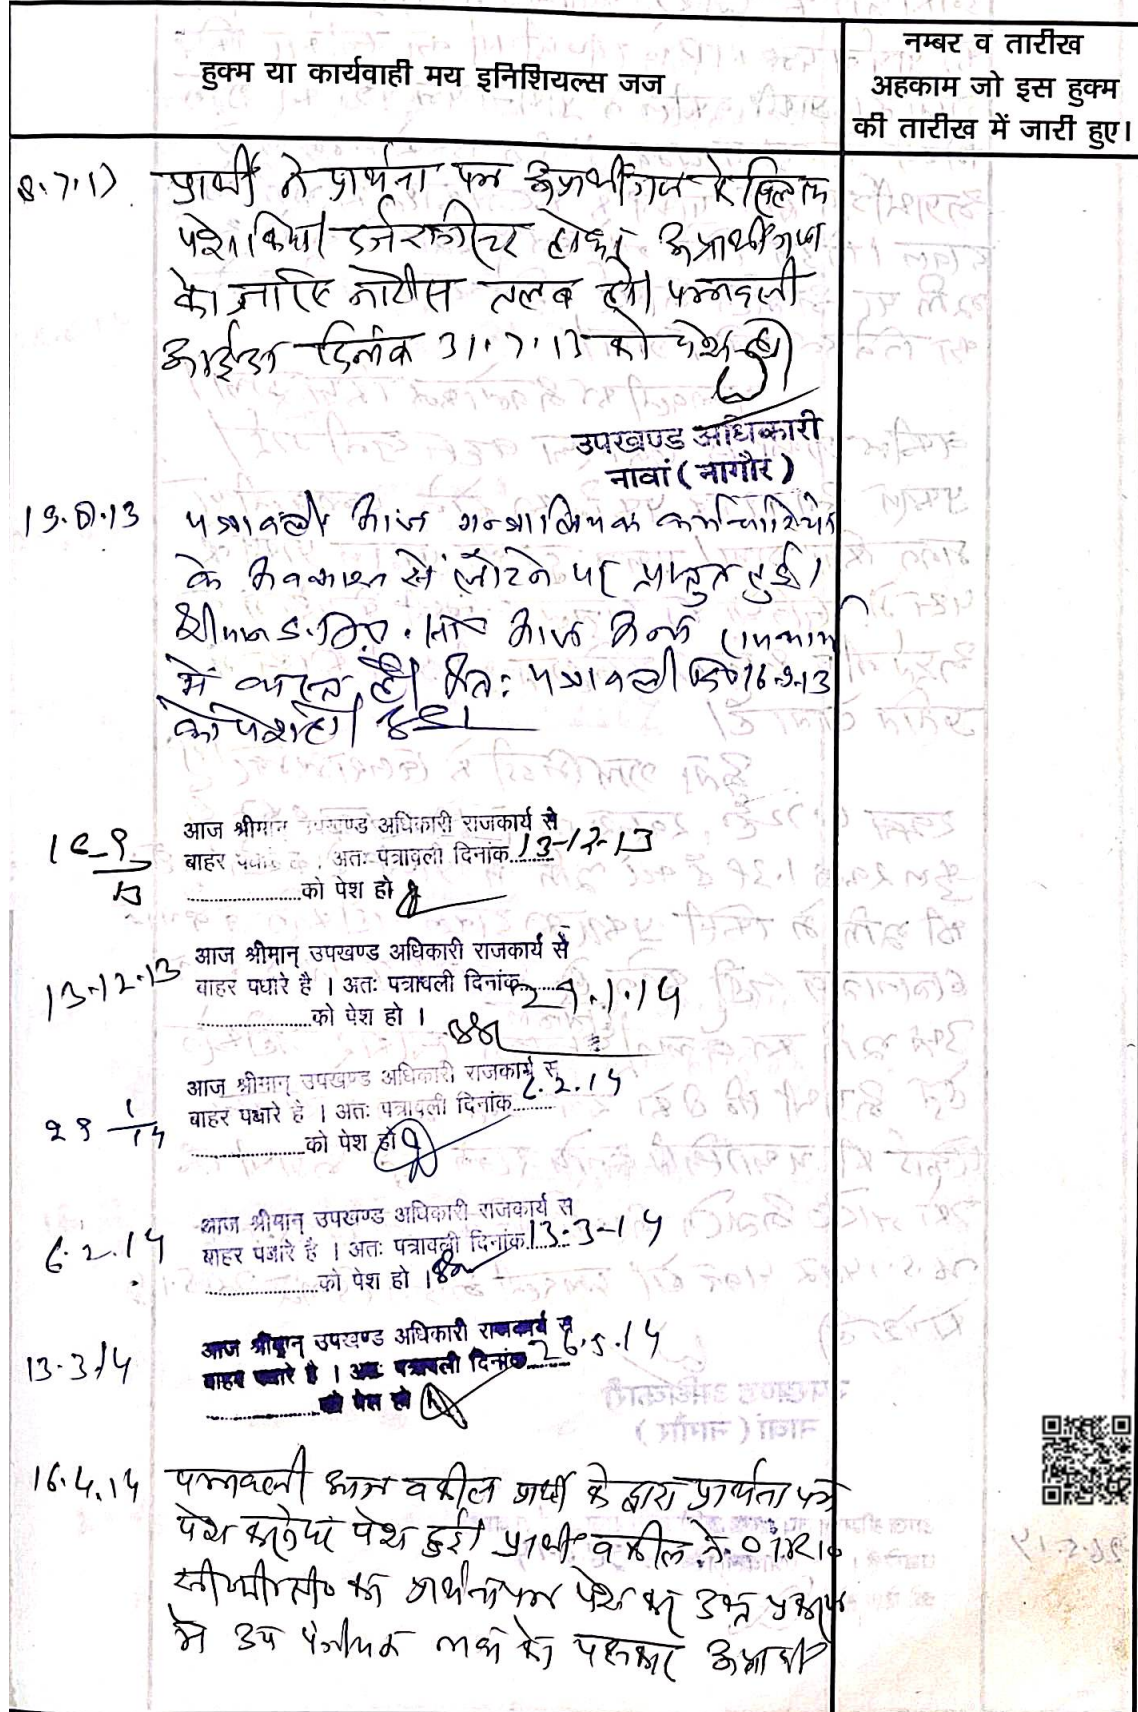 हुक्म या कार्यवाही मय इनिशियल्स जज
नम्बर व तारीख
अहकाम जो इस हुक्म
की तारीख में जारी हुए।
8.7.13 प्रार्थी ने प्रार्थना पत्र अप्रार्थीगण के खिलाफ
पेश किया। दर्ज रजिस्टर होकर अप्रार्थीगण
को जरिए नोटीस तलब हो। पत्रावली
आईंदा दिनांक 31.7.13 को पेश हो।
उपखण्ड अधिकारी
नावां (नागौर)
19.8.13 पत्रावली आज मन्त्रालयिक कर्मचारियों
के अवकाश से लौटने पर प्रस्तुत हुई।
श्रीमान आज अन्य राजकार्य
में व्यस्त है। अतः पत्रावली दि० 16-9-13
को पेश हो।
16-9-13 आज श्रीमान उपखण्ड अधिकारी राजकार्य से
बाहर पधारे है । अतः पत्रावली दिनांक 13-12-13
को पेश हो
13-12-13 आज श्रीमान् उपखण्ड अधिकारी राजकार्य से
बाहर पधारे है । अतः पत्रावली दिनांक 29.1.14
को पेश हो ।
29 1/14 आज श्रीमान् उपखण्ड अधिकारी राजकार्य से
बाहर पधारे है । अतः पत्रावली दिनांक 6.2.14
को पेश हो
6.2.14 आज श्रीमान् उपखण्ड अधिकारी राजकार्य से
बाहर पधारे है । अतः पत्रावली दिनांक 13-3-14
को पेश हो ।
13.3.14 आज श्रीमान् उपखण्ड अधिकारी राजकार्य से
बाहर पधारे है । अतः पत्रावली दिनांक 26.5.14
को पेश हो
16.4.14 पत्रावली आज वकील प्रार्थी के द्वारा प्रार्थना पत्र
पेश करने पर पेश हुई। प्रार्थी वकील ने 01R10
सी०पी०सी० का प्रार्थना पत्र पेश कर उक्त प्रकरण
में उप पंजीयक को पक्षकार अप्रार्थी